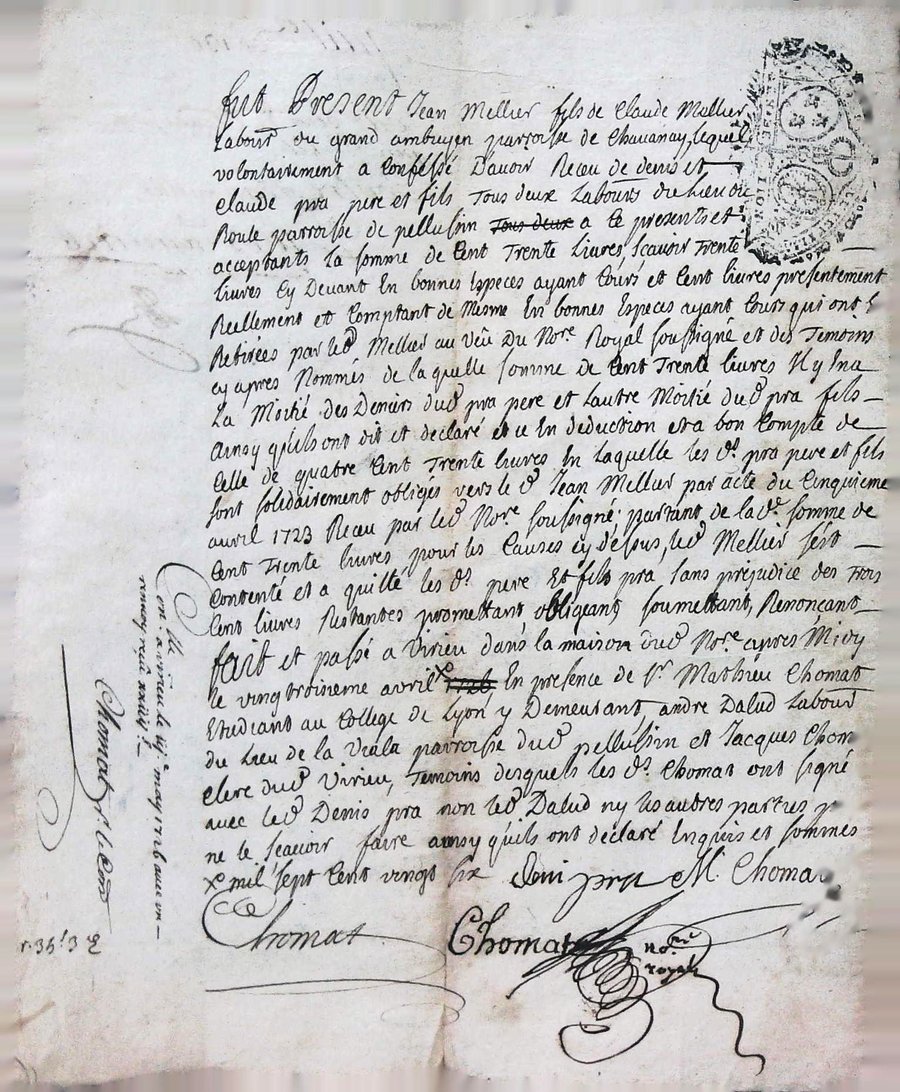 fut Present Jean Mellier fils de Claude Mellier
Labour du grand ambuyen parroisse de Chavanay, lequel
volontairement a Confessé D'avoir Receu de denis et
Claude pra pere et fils Tous deux Labours du Lieu de
Roule parroisse de pellussin Tous deux a ce presents et
acceptants la somme de Cent Trente Livres, scavoir Trente
livres Cy Devant En bonnes Especes ayant Cours et Cent livres presentement
Reellement et Comptant de Mesme En bonnes Especes ayant Cours qui ont E
Retirées par led Mellier au vëu Du Nore Royal soussigné et des Temoins
cy apres Nommés de la quelle somme de Cent Trente livres Il y En a
La Moitié des Deniers dud pra pere et Lautre Moitié dud pra fils
Ainsy qu'ils ont dit et declaré et ce En deduction et a bon Compte de
Celle de quatre Cent Trente livres En laquelle les ds pra pere et fils
sont solidairement obligés vers le d Jean Mellier par acte du Cinquieme
avril 1723 Receu par led Nore soussigné; partant de la de somme de
Cent Trente livres pour les Causes cy dessus, led Mellier s'est
Contenté et a quillé les ds pere Et fils pra sans préjudice des Trois
Cent livres Restantes promettant, obligeant, soumettant, Renonçant
fait et passé a Virieu dans la maison dud Nore apres Midy
le vingtroisieme avril x 1726 En presence de Sr Mathieu Chomat
Etudiant au College de Lyon y Demeurant, andre Dalud Labour
du Lieu de la Viala parroisse dud pellussin et Jacques Chom
clerc dud Virieu, Temoins desquels les ds Chomat ont signé
avec led Denis pra non led Dalud ny les autres parties p
ne le scavoir faire ainsy qu'ils ont declaré Enquis et sommés
x mil sept Cent vingt six Deni pra M. Chomat
Chomat Chomat nore
royal
may 1726 avec un
renvoy
Chomat